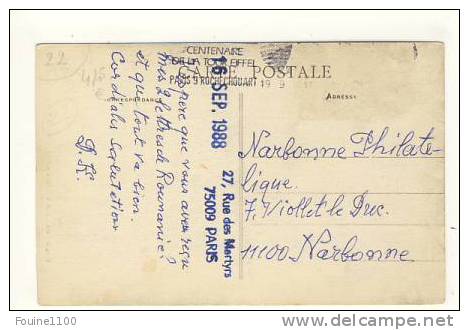 22
4/5
CENTENAIRE
DE LA TOUR EIFFEL
PARIS 9 ROCHECHOUART
19 9
CARTE POSTALE
CORRESPONDANCE
ADRESSE
J'espère que vous avez reçu
mes 2 lettres de Roumanie?
et que tout va bien.
Cordiales Salutations
16 SEP. 1988
27, Rue des Martyrs
75009 PARIS
Narbonne Philaté-
lique.
7, Viollet le Duc.
11100 Narbonne
Fouine1100
delcampe.net